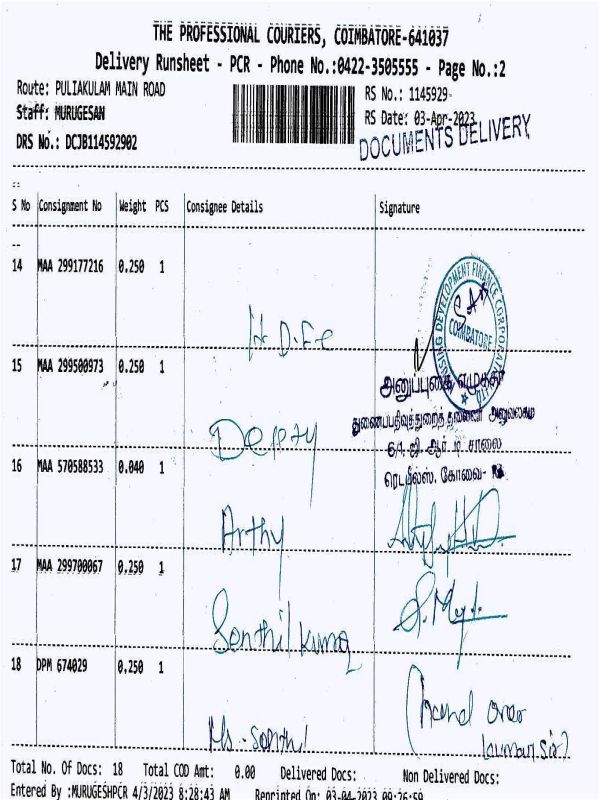 THE PROFESSIONAL COURIERS, COIMBATORE-641037
Delivery Runsheet - PCR - Phone No.:0422-3505555 - Page No.:2
Route: PULIAKULAM MAIN ROAD RS No.: 1145929
Staff: MURUGESAN RS Date: 03-Apr-2023
DRS No.: DCJB114592902 DOCUMENTS DELIVERY
S No Consignment No Weight PCS Consignee Details Signature
14 MAA 299177216 0.250 1
HOUSING DEVELOPMENT FINANCE CORPORATION LTD
COIMBATORE
15 MAA 299500973 0.250 1
அனுப்புகை எழுத்தர்
துணைப்பதிவுத்துறைத் தலைவர் அலுவலகம்
6/1 ஜி. ஆர். டி. சாலை
ரெட்பீல்ஸ், கோவை- 18
Deputy
16 MAA 570588533 0.040 1
Arthy
17 MAA 299700067 0.250 1
Senthil kumar
18 DPM 674029 0.250 1
Ms. Senthil
Total No. Of Docs: 18 Total COD Amt: 0.00 Delivered Docs: Non Delivered Docs:
Entered By :MURUGESHPCR 4/3/2023 8:28:43 AM Reprinted On: 03-04-2023 09:26:59